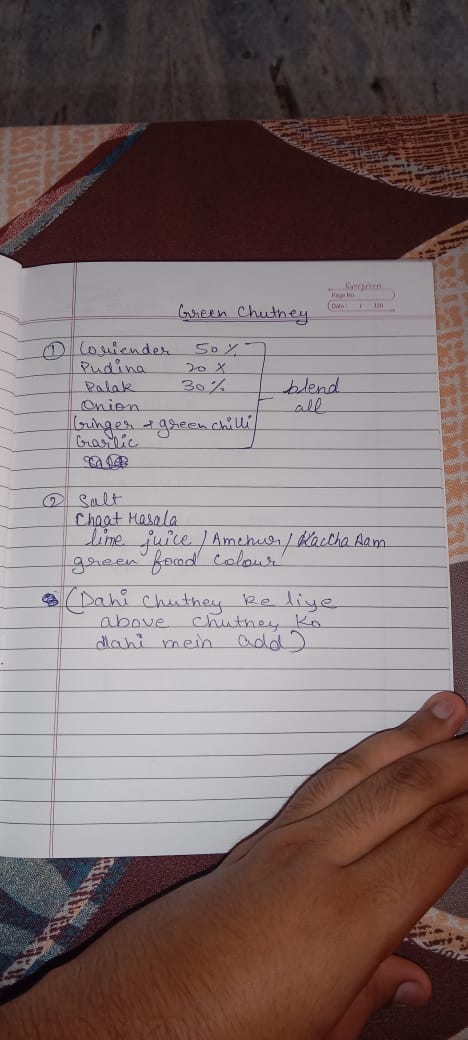 Evergreen
Page No.
Date: / /20
Green Chutney
① Coriender 50%
Pudina 20 %
Palak 30%
Onion
Ginger + green chilli
Garlic
blend
all
② Salt
Chaat Masala
lime juice / Amchur / Kaccha Aam
green food colour
(Dahi chutney ke liye
above chutney ko
dahi mein add)